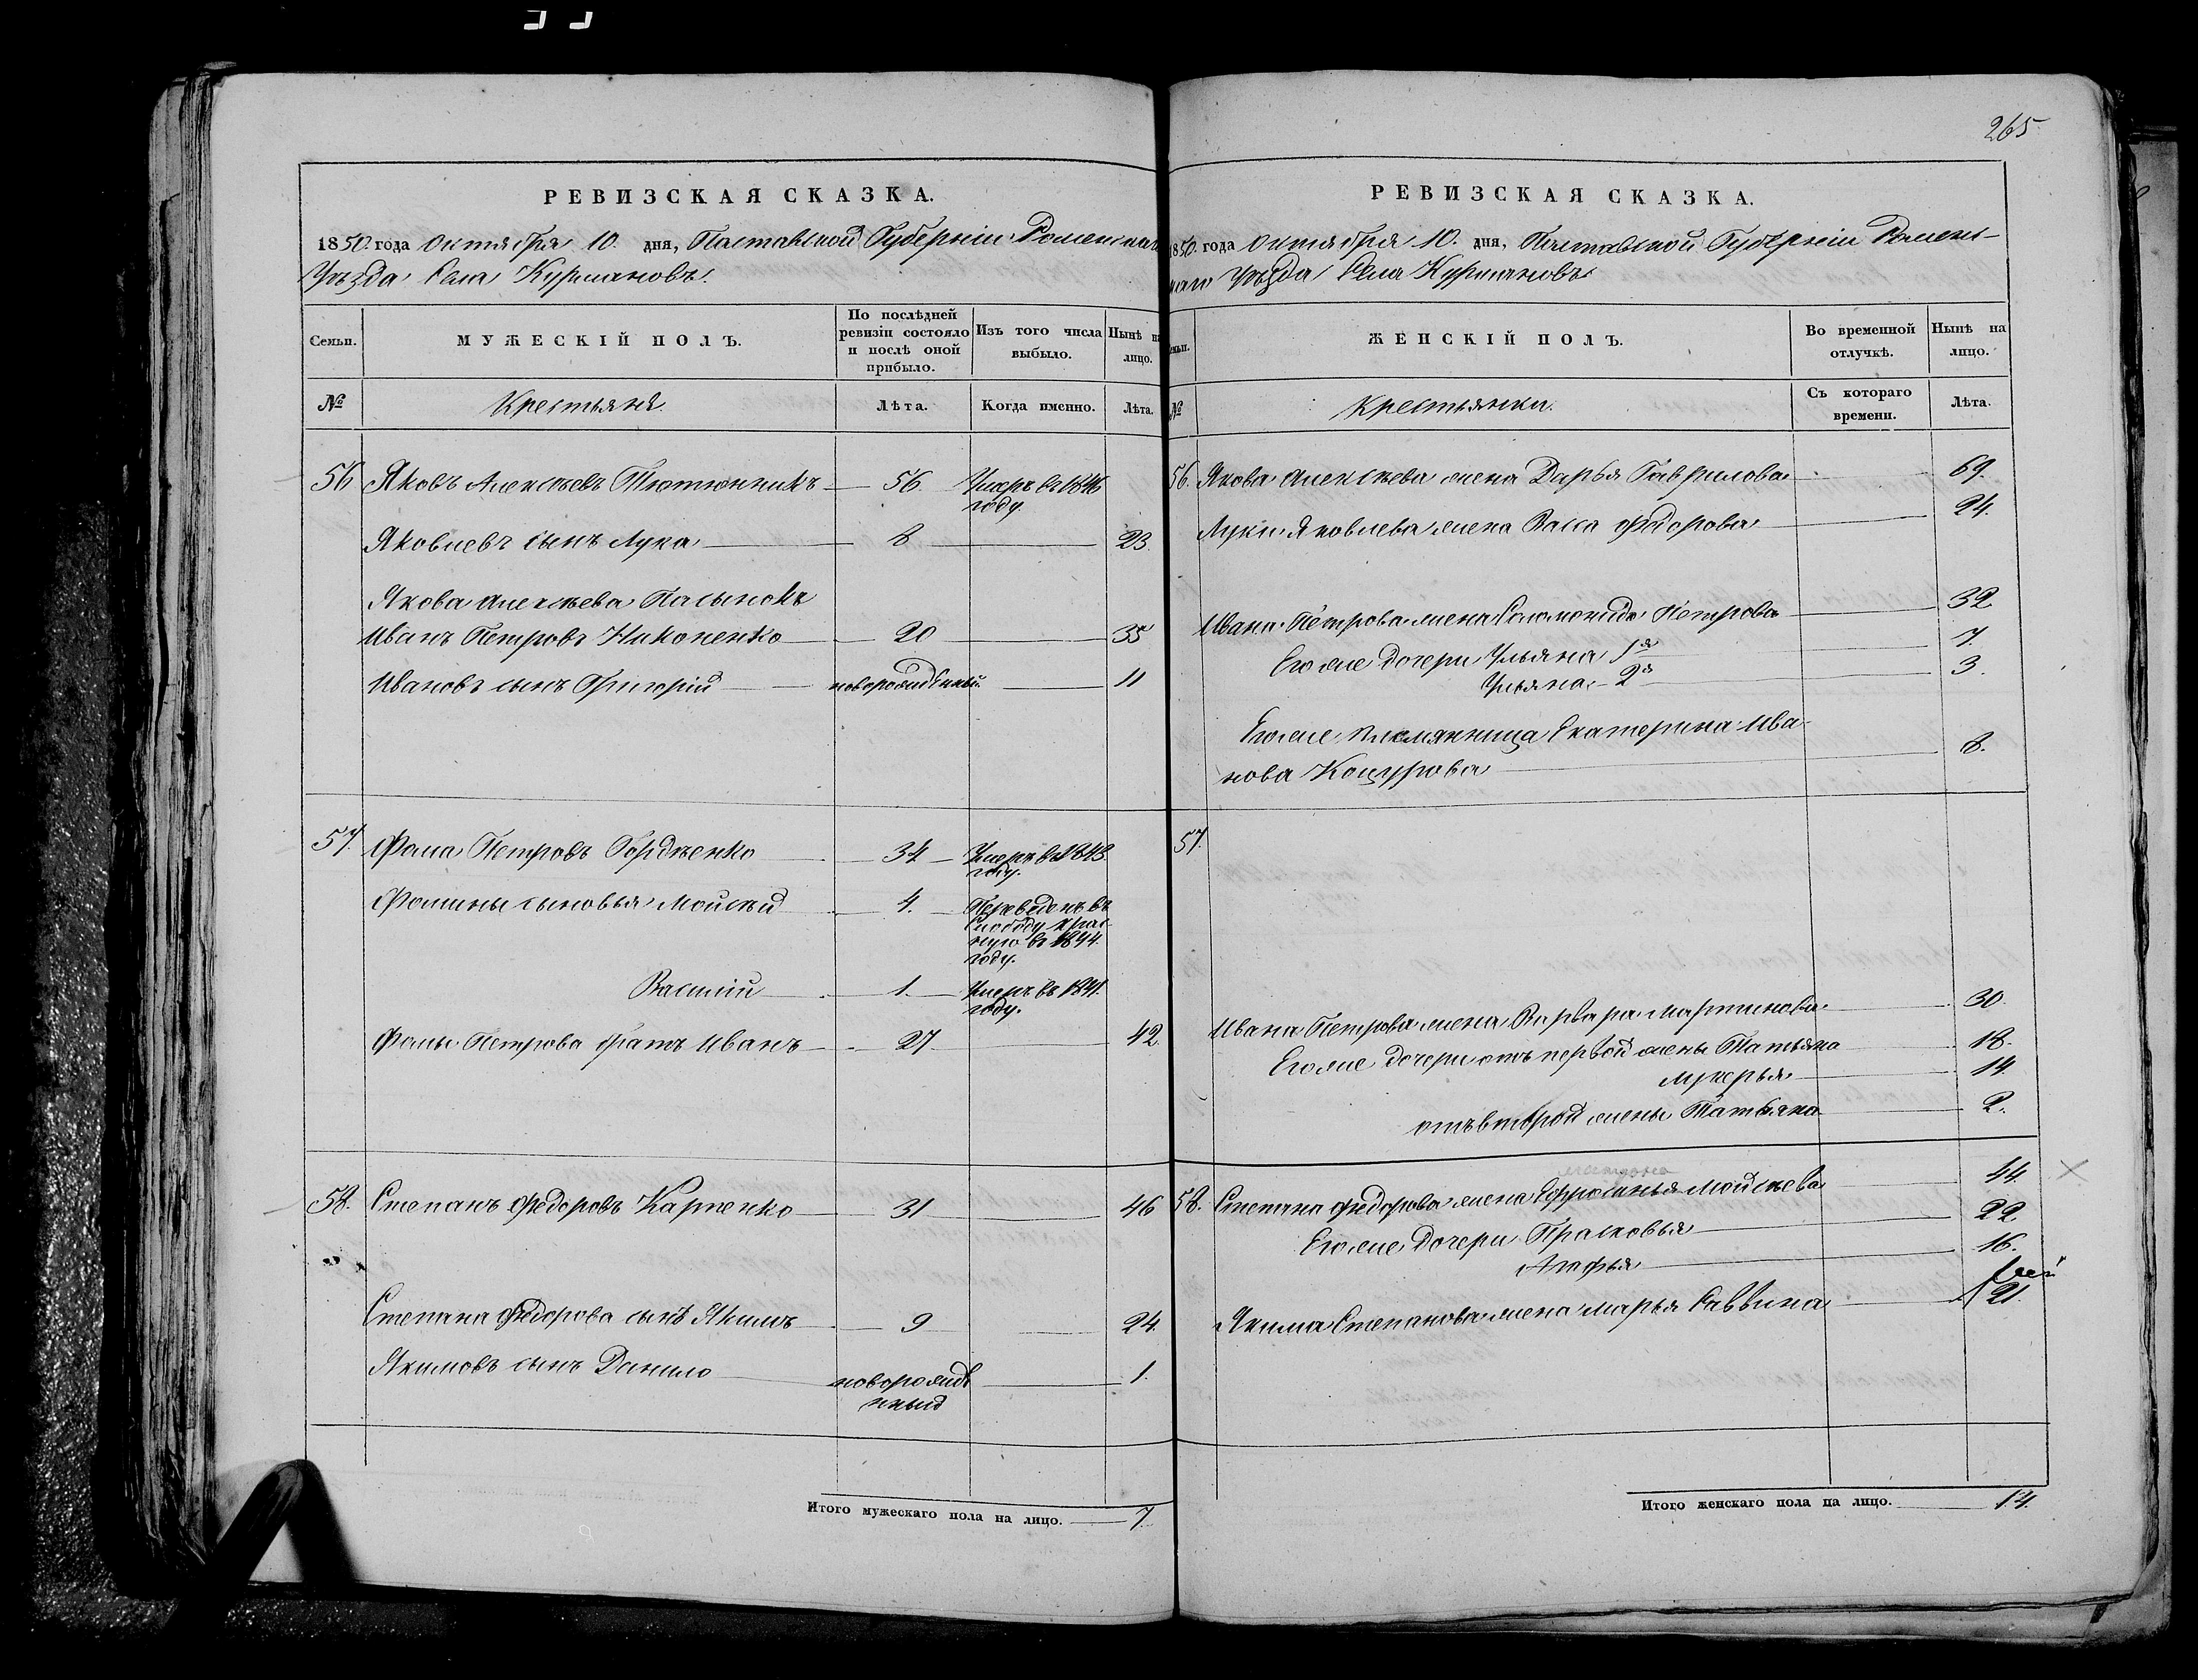 265
РЕВИЗСКАЯ СКАЗКА.
1850. года Октября 10. дня, Полтавской Губерніи Роменскаго
Уѣзда Села Курмановъ.
Семьи.
МУЖЕСКІЙ ПОЛЪ.
По послѣдней ревизіи состояло и послѣ оной прибыло.
Изъ того числа выбыло.
Нынѣ на лицо.
№
Крестьяня.
Лѣта.
Когда именно.
Лѣта.
56 Яковъ Алексѣевъ Тютюнникъ 56. Умеръ въ 1846
году.
Яковлевъ сынъ Лука 8 23.
Якова Алексѣева Пасынокъ
Иванъ Петровъ Никоненко 20 35
Ивановъ сынъ Григорій новорожденный. 11
57. Фома Петровъ Гордѣенко 34 Умеръ въ 1848.
году.
Фомины сыновья Мойсей 4. Переведенъ въ
Слободу Крас-
ную въ 1844.
году.
Василій 1. Умеръ въ 1841.
году.
Фомы Петрова братъ Иванъ 27 42.
58. Степанъ Федоровъ Карпенко 31 46
Степана Федорова сынъ Якимъ 9 24.
Якимовъ сынъ Данило новорожде
нный 1.
Итого мужескаго пола на лицо. 7.
РЕВИЗСКАЯ СКАЗКА.
1850. года Октября 10. дня, Полтавской Губерніи Роменс-
каго Уѣзда Села Курмановъ
Семьи.
ЖЕНСКІЙ ПОЛЪ.
Во временной отлучкѣ.
Нынѣ на лицо.
№
Крестьянки.
Съ котораго времени.
Лѣта.
56. Якова Алексѣева жена Дарья Гаврилова 69.
Луки Яковлева жена Васса Федорова 24.
Ивана Петрова жена Соломонида Петрова 32
Его же дочери Ульяна 1я 7.
Ульяна 2я 3.
Его же племянница Екатерина Ива-
нова Кощурова 8.
57.
Ивана Петрова жена Варвара Мартинова 30.
Его же дочери отъ первой жены Татьяна 18.
Лукерья 14.
отъ второй жены Татьяна 2.
58. Степана Федорова жена Ефросинья Мойсеева 44.
Его же дочери Прасковья 22
Агафья 16.
Якима Степанова жена Марья Саввина 21
Итого женскаго пола на лицо. 14.